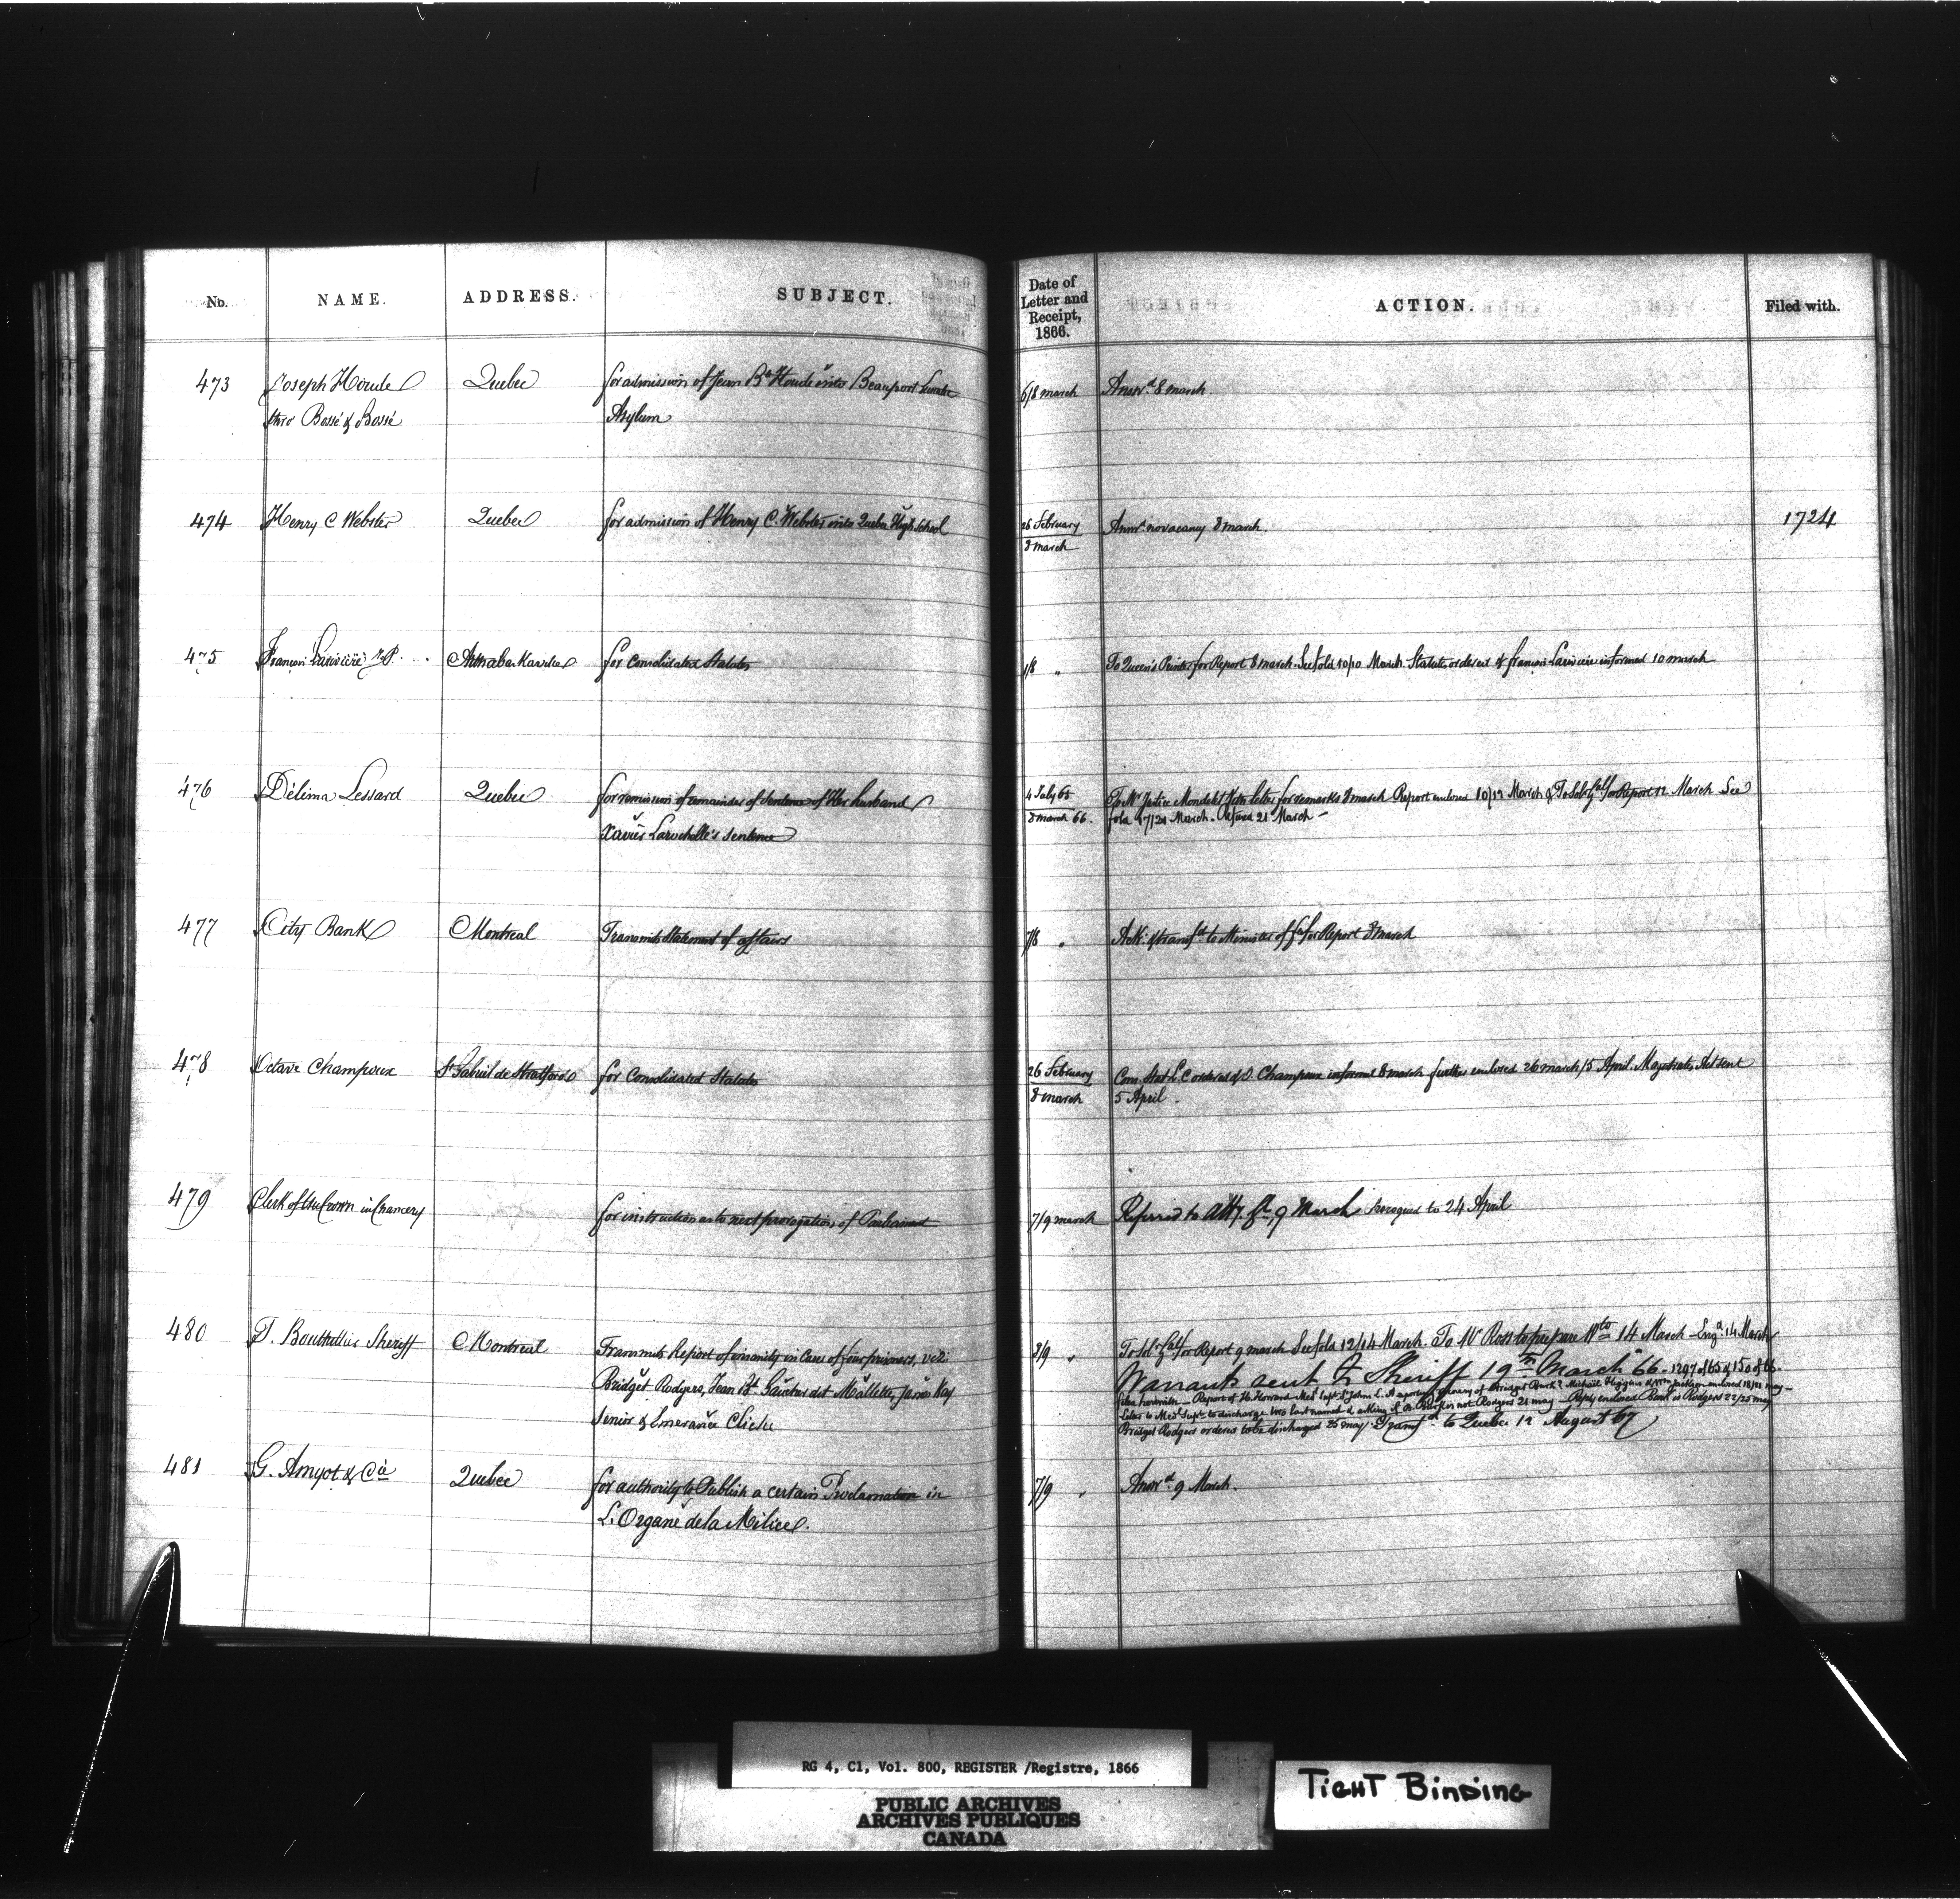 No. NAME. ADDRESS. SUBJECT. Date of Letter and Receipt, 1866. ACTION. Filed with.
473 Joseph Houde Quebec for admission of Jean Bte Houde into Beauport Lunatic 6/8 march Answd. 8 march.
thro Bossé & Bossé Asylum
474 Henry C Webster Quebec for admission of Henry C. Webster into Quebec High School 26 February Answd. no vacancy 8 march. 1724
8 march
475 François Larivière Arthabaskaville for Consolidated Statutes 1/8 " To Queen's Printer for Report 8 march. See fold 10/10 March. Statutes ordered & françois Lariviere informed 10 march
476 Délima Lessard Quebec for remission of remainder of Sentence of Her husband 4 July 65 To Mr Justice Mondelet for letter for remarks 8 march Report enclosed 10/12 March & To Sol. Gal for Report 12 March See
Xavier Larochelle's sentence 8 march 66. fold 17/20 March. Refused 21 March —
477 City Bank Montreal Transmits Statement of affairs 7/8 " Ack. & transfd to Minister of for Report 8 march
478 Octave Champoux St Gabriel de Stratford for Consolidated Statutes 26 February Cons. Stat L C ordered & O. Champoux informed 8 march further enclosed 26 march/5 April. Magistrates Act sent
8 march 5 April.
479 Clerk of the Crown in Chancery for instruction as to next prorogation of Parliament 7/9 march Referred to Atty. Gl, 9 March prorogued to 24 April
480 T. Bouthillier Sheriff Montreal Transmits Report of insanity in Cases of four prisoners, viz: 8/9 " To Sol. Gal for Report 9 march See fold 12/14 March. To Mr Ross to prepare Wts 14 March — Engd. 14 March
Bridget Rodgers, Jean Bt. Gauthier dit Mallette, James Kay Warrants sent to Sheriff 19th March 66. 1297 of 65 & 150 of 66
Senior & Emerance Cliche filed herewith — Report of Howard Medl Supt. St Johns L. A. reporting of Bridget Burk? Michael Higgins & Wm Jackson enclosed 18/21 may —
Letter to Medl Supt to discharge two last named & asking if B. Burk is not Rodgers 21 may — Reply enclosed Burk is Rodgers 22/25 may
Bridget Rodgers ordered to be discharged 25 may. Transfd. to Quebec 12 August 67
481 G. Amyot & Cie Quebec for authority to Publish a certain Proclamation in 7/9 " Answd. 9 March.
L'Organe de la Milice.
RG 4, C1, Vol. 800, REGISTER /Registre, 1866
PUBLIC ARCHIVES
ARCHIVES PUBLIQUES
CANADA
TIGHT BINDING